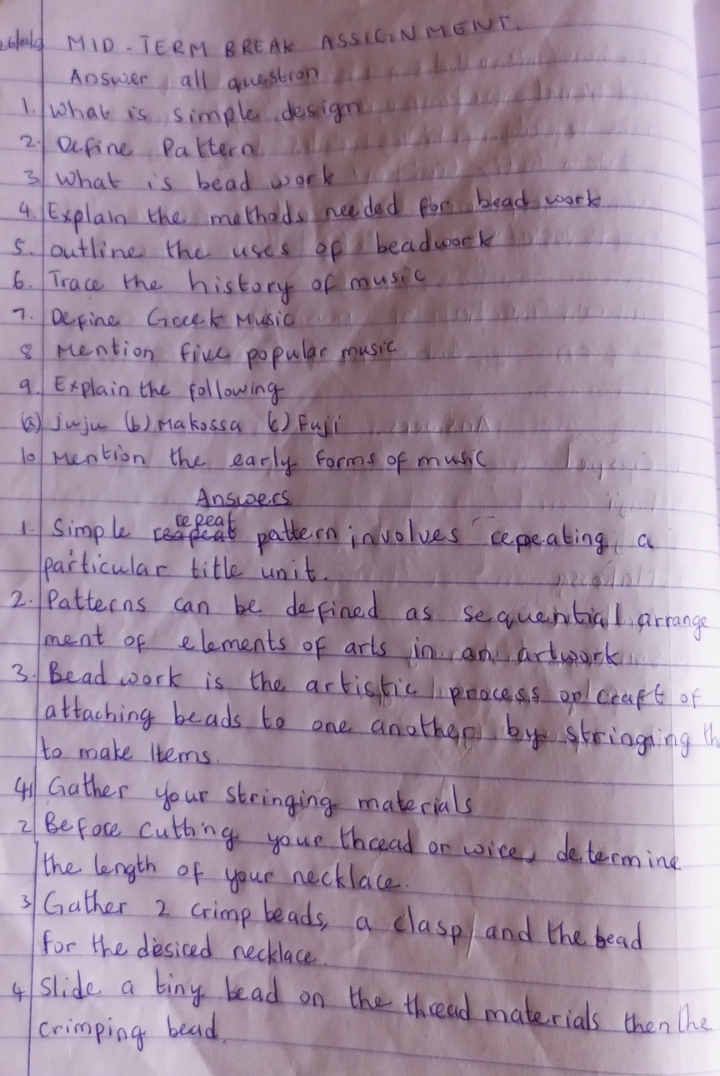 MID-TERM BREAK ASSIGNMENT.
Answer all question
1. What is simple design
2. Define Pattern
3 What is bead work
4. Explain the methods needed for bead work
5. outline the uses of beadwork
6. Trace the history of music
7. Define Greek Music
8 Mention five popular music
9. Explain the following
(a) juju (b) Makossa (c) Fuji
10 Mention the early forms of music
Answers
1. Simple repeat pattern involves repeating a
particular title unit.
2. Patterns can be defined as sequential arrange
ment of elements of arts in an artwork
3. Bead work is the artistic process or craft of
attaching beads to one another by stringing
to make Items.
4 1 Gather your stringing materials
2 Before cutting your thread or wire, determine
the length of your necklace.
3 Gather 2 crimp beads, a clasp and the bead
for the desired necklace.
4 Slide a tiny bead on the thread materials then the
crimping bead.